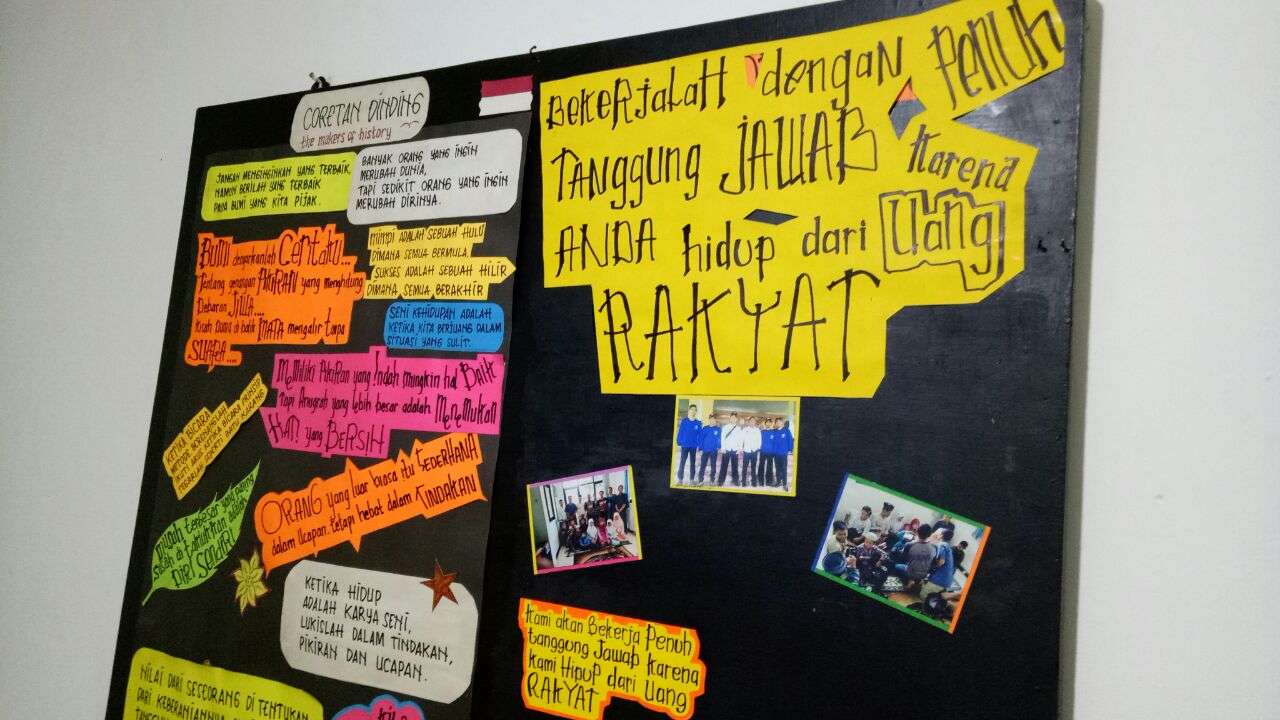 CORETAN DINDING
the makers of history
JANGAN MENGINGINKAN YANG TERBAIK,
NAMUN BERILAH YANG TERBAIK
PADA BUMI YANG KITA PIJAK.
BANYAK ORANG YANG INGIN
MERUBAH DUNIA,
TAPI SEDIKIT ORANG YANG INGIN
MERUBAH DIRINYA.
BUMI dengarkanlah Ceritaku...
Tentang genangan PIKIRAN yang menghitung
Debaran JIWA....
Kisah Dunia di balik MATA mengalir tanpa
SUARA....
MIMPI ADALAH SEBUAH HULU
DIMANA SEMUA BERMULA,
SUKSES ADALAH SEBUAH HILIR
DIMANA SEMUA BERAKHIR
SENI KEHIDUPAN ADALAH
KETIKA KITA BERJUANG DALAM
SITUASI YANG SULIT.
Memiliki PIKIRAN yang Indah mungkin hal BAIK
Tapi Anugrah yang lebih besar adalah MENEMUKAN
HATI yang BERSIH
KETIKA BICARA
SEPERTI BATU KARANG
ORANG yang luar biasa itu SEDERHANA
dalam Ucapan. tetapi hebat dalam TINDAKAN
DIRI SENDIRI
KETIKA HIDUP
ADALAH KARYA SENI,
LUKISLAH DALAM TINDAKAN,
PIKIRAN DAN UCAPAN.
NILAI DARI SESEORANG DI TENTUKAN
DARI KEBERANIANNYA
BEKERJALAH dengan PENUH
TANGGUNG JAWAB Karena
ANDA hidup dari Uang
RAKYAT
Kami akan Bekerja Penuh
tanggung Jawab karena
Kami Hidup dari Uang
RAKYAT